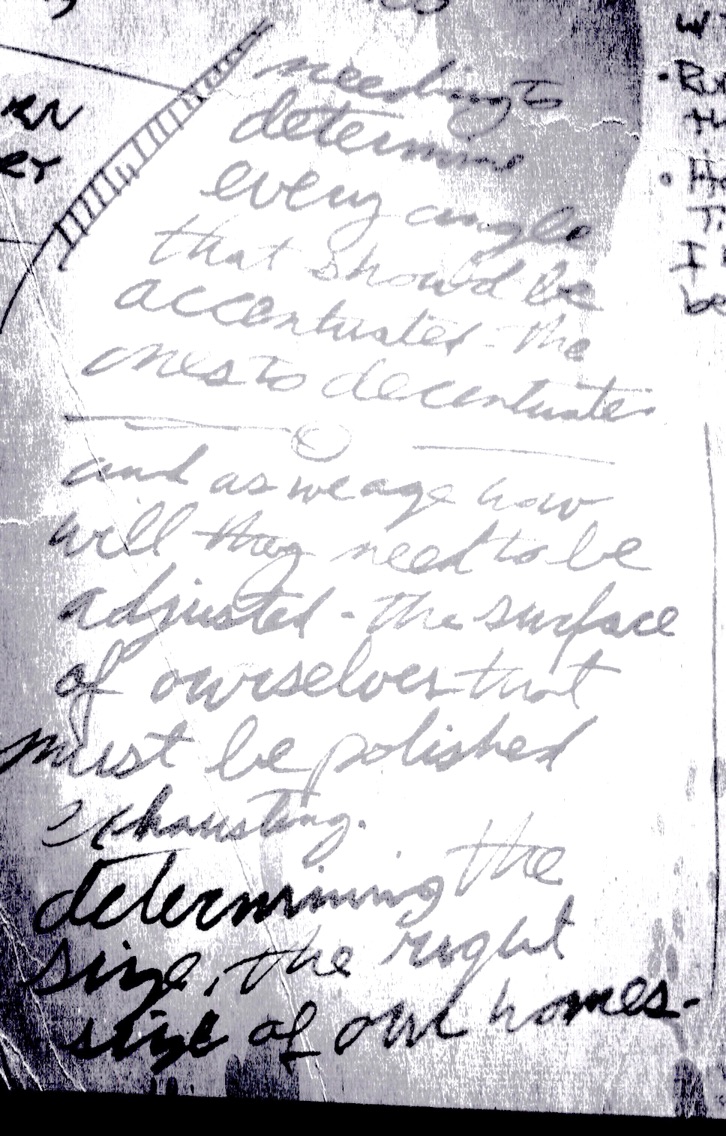 needing to
determine
every angle
that should be
accentuated - the
ones to decentuate.
and as we age how
will they need to be
adjusted - the surface
of ourselves that
must be polished
exhausting.
determining the
size, the right
size of our homes-